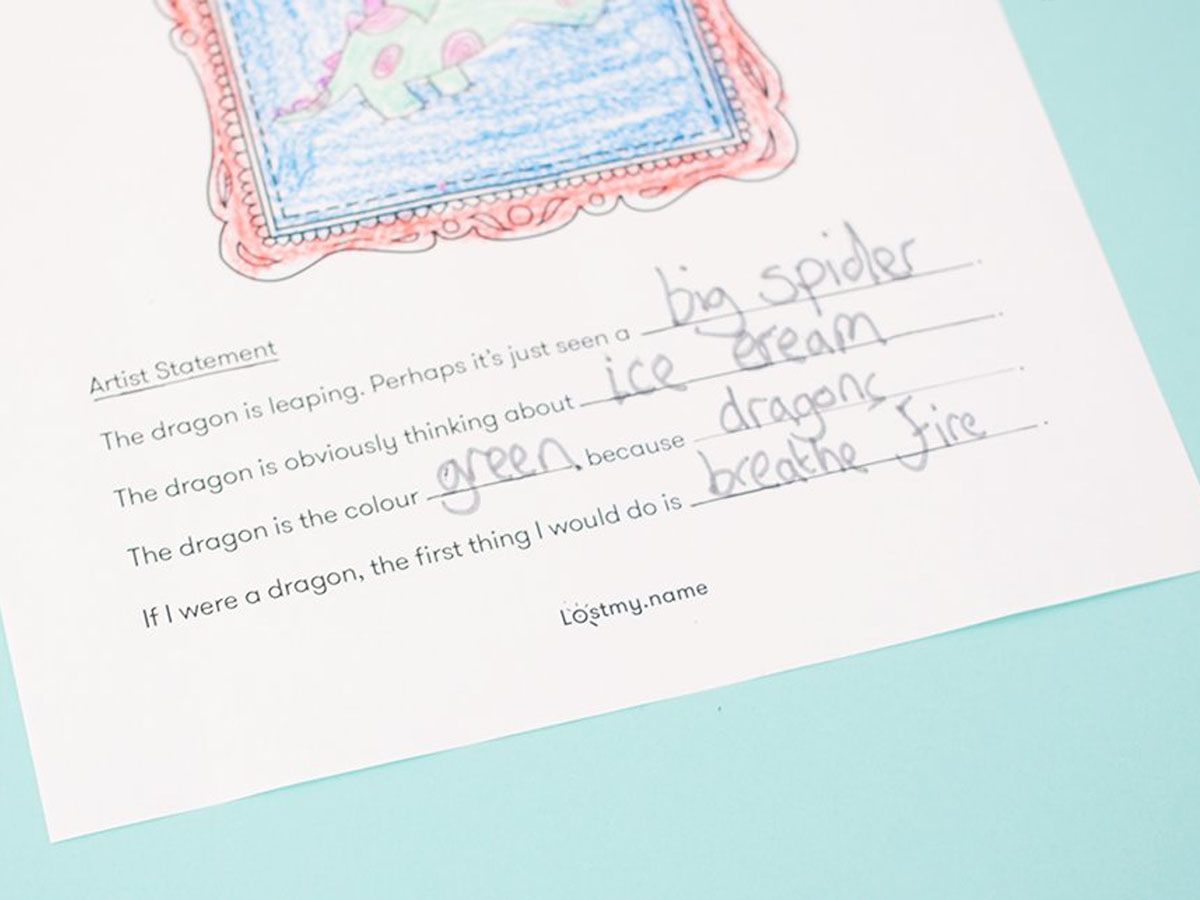 Artist Statement
The dragon is leaping. Perhaps it's just seen a big spider.
The dragon is obviously thinking about ice cream.
The dragon is the colour green, because dragons.
If I were a dragon, the first thing I would do is breathe fire.
Lostmy.name